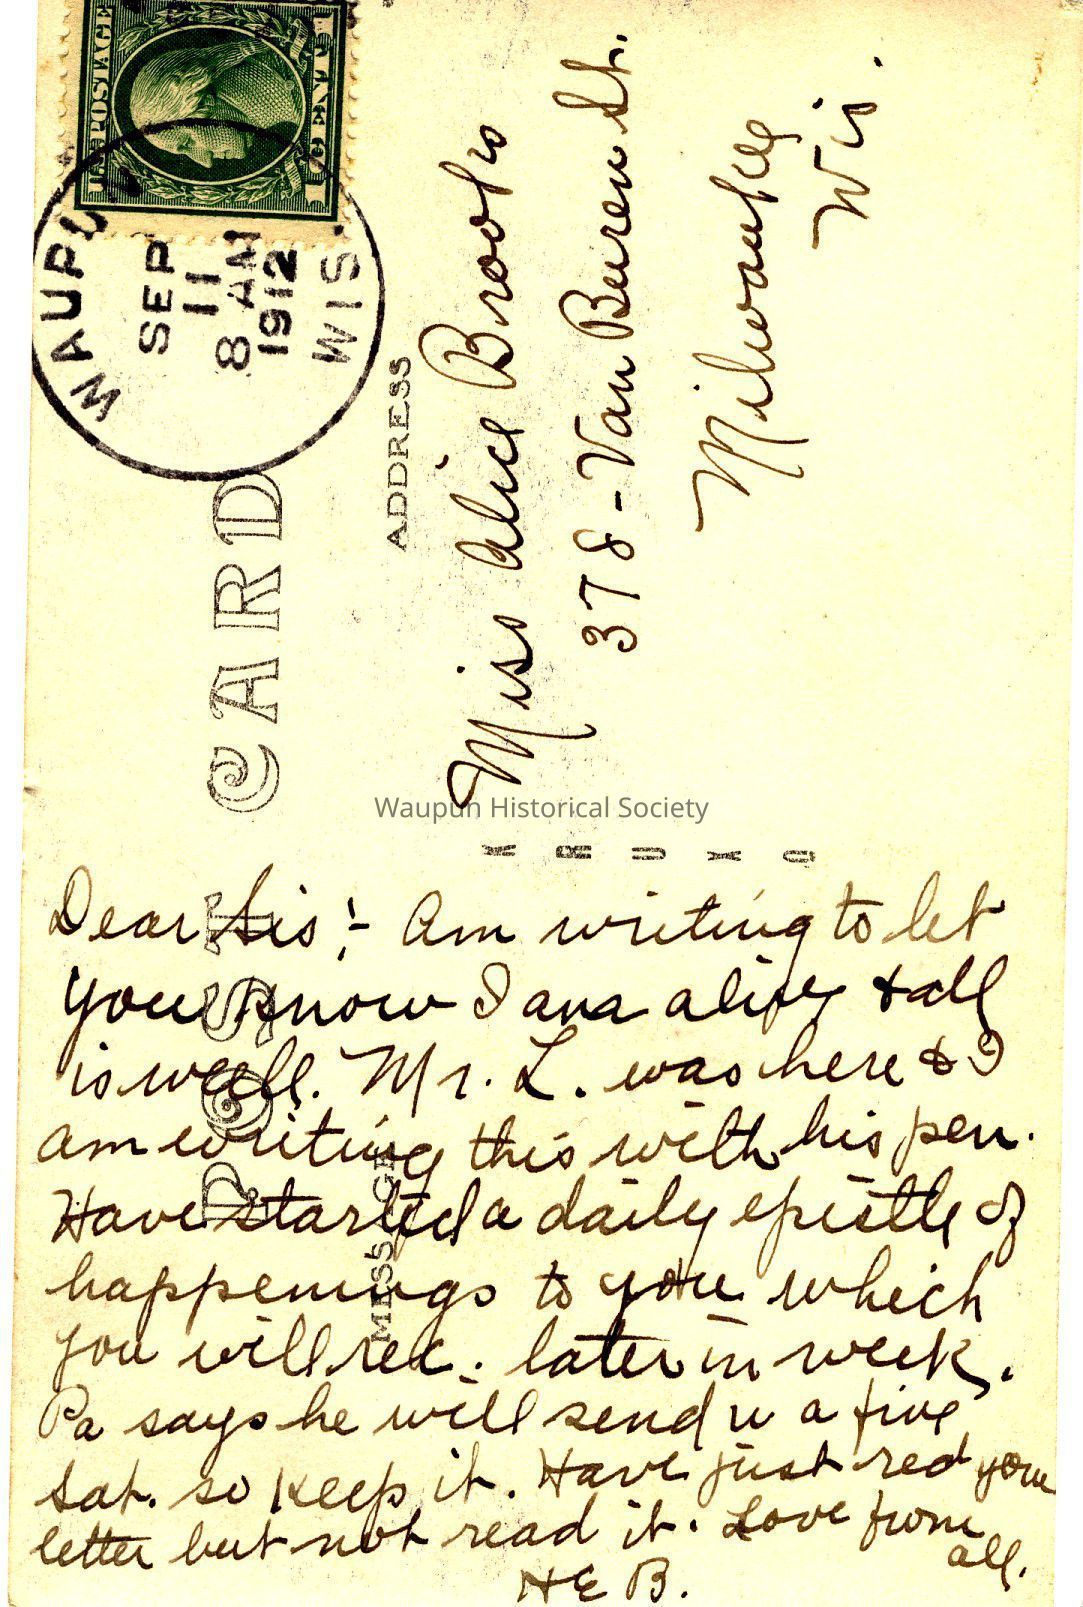 U.S. POSTAGE
WAUPUN
SEP
11
8 AM
1912
WIS.
POST CARD
ADDRESS
Miss Alice Brooks
378 - Van Buren St.
Milwaukee
Wis.
Waupun Historical Society
KRUXO
MESSAGE
Dear Sis :- Am writing to let
you know I am alive & all
is well. Mr. L. was here & I
am writing this with his pen.
Have started a daily epistle of
happenings to you which
you will rec. later in week.
Pa says he will send u a five
Sat. so keep it. Have just rec'd your
letter but not read it. Love from
all.
H E B.